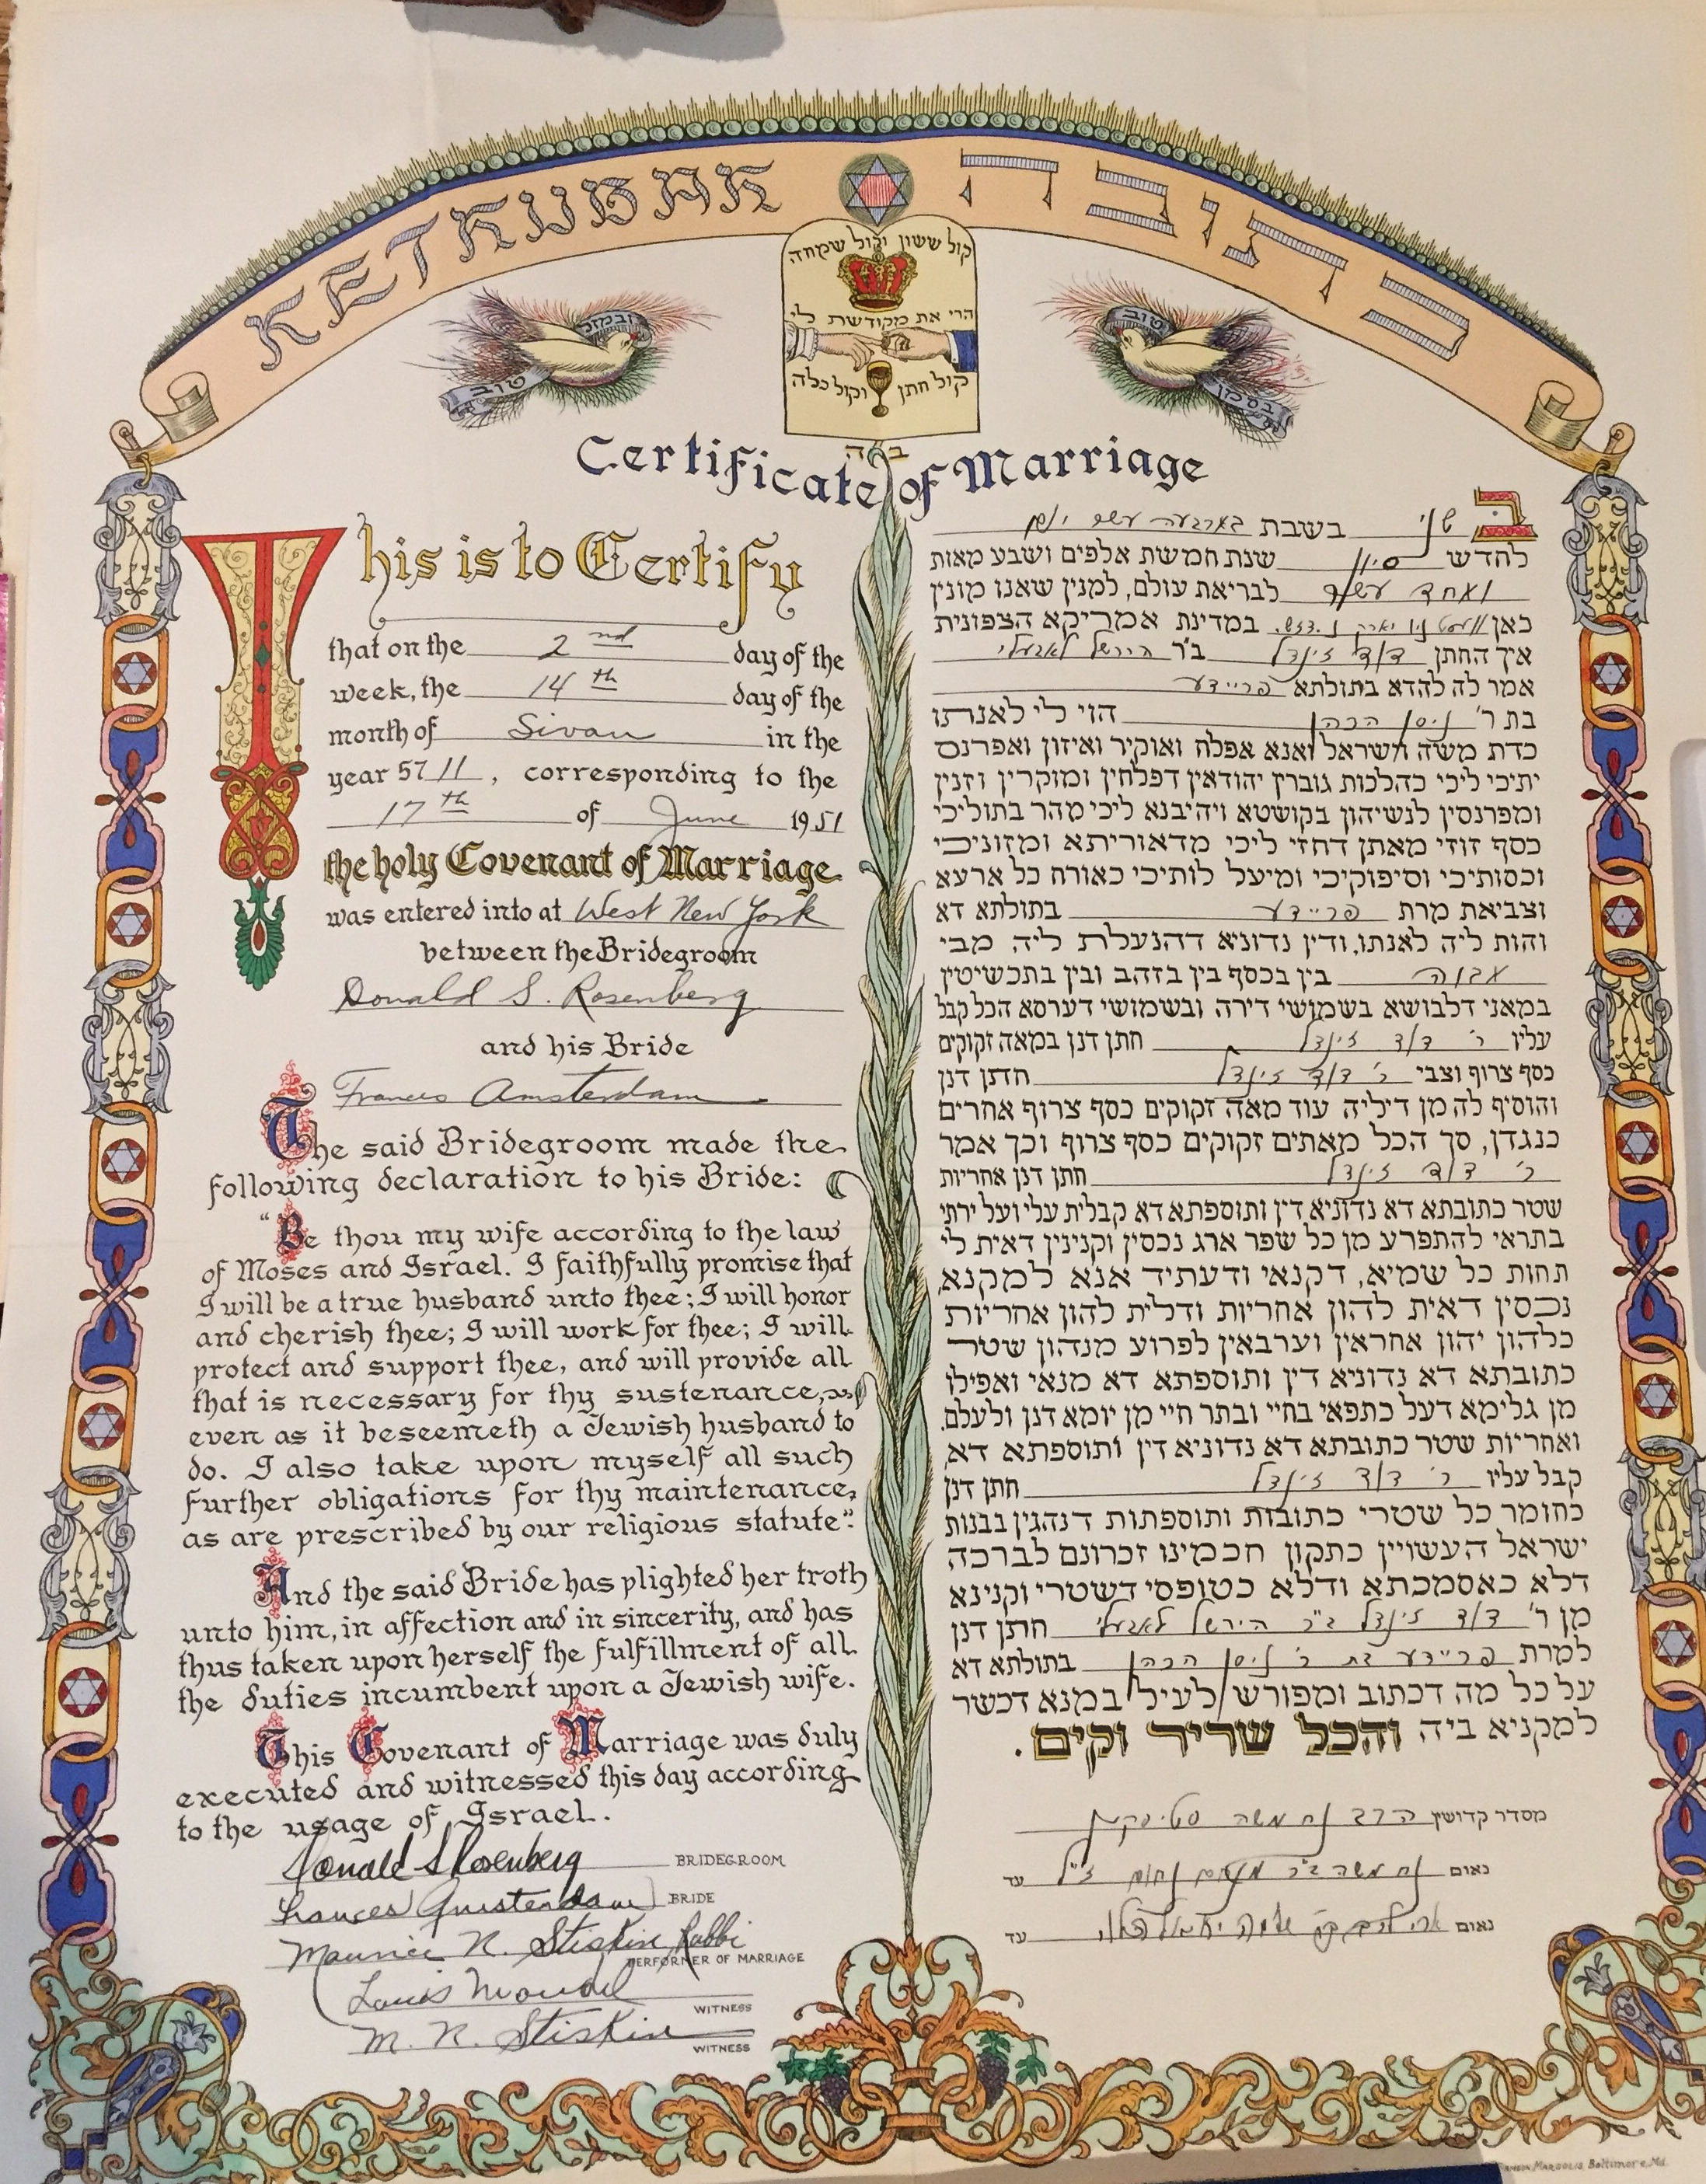 KETHUBAH כתובה
קול ששון וקול שמחה
הרי את מקודשת לי
קול חתן וקול כלה
ובמזל
טוב
טוב
בסמן
ב ה
Certificate of Marriage
This is to Certify
that on the 2nd day of the
week, the 14th day of the
month of Sivan in the
year 5711, corresponding to the
17th of June 1951
the holy Covenant of Marriage
was entered into at West New York
between the Bridegroom
Donald S. Rosenberg
and his Bride
Frances Amsterdam
The said Bridegroom made the
following declaration to his Bride:
"Be thou my wife according to the law
of Moses and Israel. I faithfully promise that
I will be a true husband unto thee; I will honor
and cherish thee; I will work for thee; I will
protect and support thee, and will provide all
that is necessary for thy sustenance,
even as it beseemeth a Jewish husband to
do. I also take upon myself all such
further obligations for thy maintenance,
as are prescribed by our religious statute".
And the said Bride has plighted her troth
unto him, in affection and in sincerity, and has
thus taken upon herself the fulfillment of all
the duties incumbent upon a Jewish wife.
This Covenant of Marriage was duly
executed and witnessed this day according
to the usage of Israel.
Donald S Rosenberg BRIDEGROOM
Frances Amsterdam BRIDE
Maurice N. Stiskin Rabbi
PERFORMER OF MARRIAGE
Louis Mandel
WITNESS
M. N. Stiskin
WITNESS
ב שני בשבת בארבעה עשר יום
לחדש סיון שנת חמשת אלפים ושבע מאות
ואחד עשר לבריאת עולם, למנין שאנו מונין
כאן וועסט ניו יארק נ. דזש. במדינת אמריקא הצפונית
איך החתן דוד זינדל ב"ר הירשל
אמר לה להדא בתולתא פריידע
בת ר' ניסן הכהן הוי לי לאנתו
כדת משה וישראל ואנא אפלח ואוקיר ואיזון ואפרנס
יתיכי ליכי כהלכות גוברין יהודאין דפלחין ומוקרין וזנין
ומפרנסין לנשיהון בקושטא ויהיבנא ליכי מהר בתוליכי
כסף זוזי מאתן דחזי ליכי מדאוריתא ומזוניכי
וכסותיכי וסיפוקיכי ומיעל לותיכי כאורח כל ארעא
וצביאת מרת פריידע בתולתא דא
והות ליה לאנתו, ודין נדוניא דהנעלת ליה מבי
אבוה בין בכסף בין בזהב ובין בתכשיטין
במאני דלבושא בשמושי דירה ובשמושי דערסא הכל קבל
עליו ר' דוד זינדל חתן דנן במאה זקוקים
כסף צרוף וצבי ר' דוד זינדל חתן דנן
והוסיף לה מן דיליה עוד מאה זקוקים כסף צרוף אחרים
כנגדן, סך הכל מאתים זקוקים כסף צרוף וכך אמר
ר' דוד זינדל חתן דנן אחריות
שטר כתובתא דא נדוניא דין ותוספתא דא קבלית עלי ועל ירתי
בתראי להתפרע מן כל שפר ארג נכסין וקנינין דאית לי
תחות כל שמיא, דקנאי ודעתיד אנא למקנא,
נכסין דאית להון אחריות ודלית להון אחריות
כלהון יהון אחראין וערבאין לפרוע מנהון שטר
כתובתא דא נדוניא דין ותוספתא דא מנאי ואפילו
מן גלימא דעל כתפאי בחיי ובתר חיי מן יומא דנן ולעלם.
ואחריות שטר כתובתא דא נדוניא דין ותוספתא דא
קבל עליו ר' דוד זינדל חתן דנן
כחומר כל שטרי כתובות ותוספתות דנהגין בבנות
ישראל העשויין כתקון חכמינו זכרונם לברכה
דלא כאסמכתא ודלא כטופסי דשטרי וקנינא
מן ר' דוד זינדל ב"ר הירשל חתן דנן
למרת פריידע בת ר' ניסן הכהן בתולתא דא
על כל מה דכתוב ומפורש לעיל במנא דכשר
למקניא ביה והכל שריר וקים.
מסדר קדושין הרב נח משה סטיסקין
נאום נח משה ב"ר מנחם נחום ז"ל עד
נאום עד
MARGOLIS Baltimore, Md.